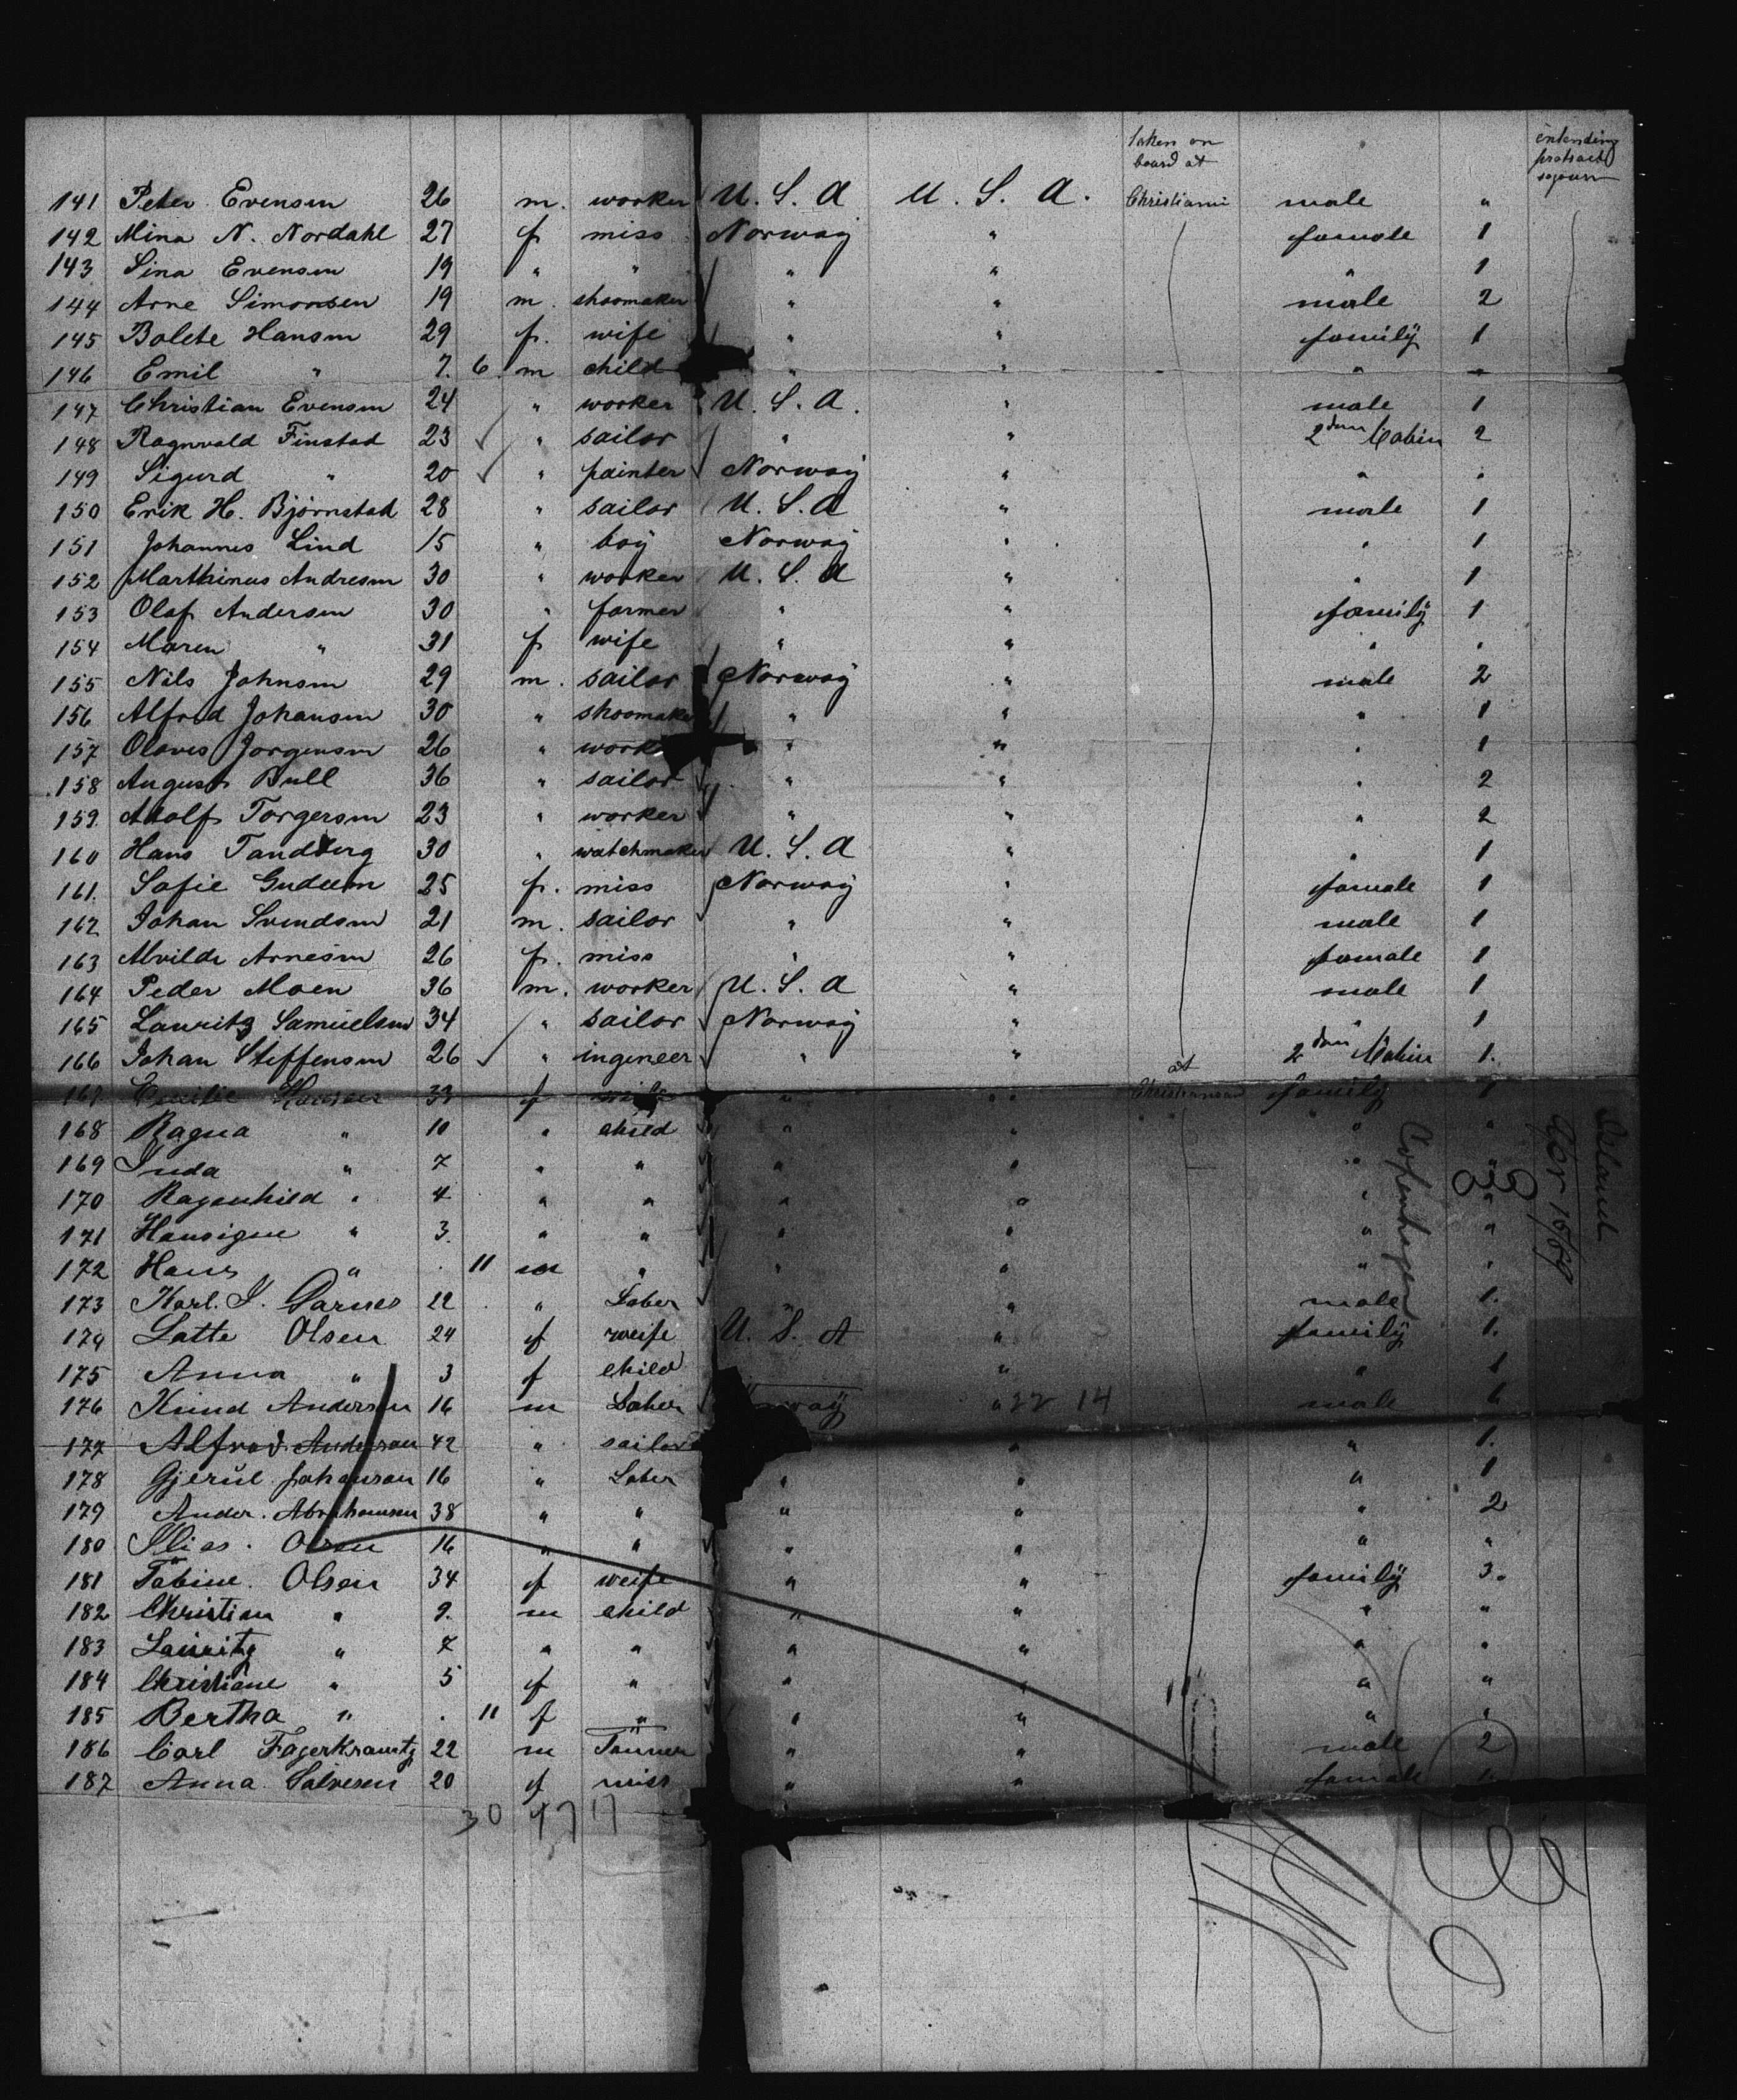 taken on board at
intending protracted sojourn
141 Peter Evensen 26 m. worker U. S. A U. S. A. Christiania male "
142 Mina N. Nordahl 27 f miss Norway " female 1
143 Lina Evensen 19 " " " " " 1
144 Arne Simonsen 19 m. shoomaker " " male 2
145 Bolete Hansen 29 f. wife " " family 1
146 Emil " 7. 6 m child " " " "
147 Christian Evensen 24 " worker U. S. A. " male 1
148 Ragnvald Finstad 23 " sailor " " 2den Cabin 2
149 Sigurd " 20 " painter Norway " " "
150 Erik H. Bjørnstad 28 " sailor U. S. A " male 1
151 Johannes Lind 15 " boy Norway " " 1
152 Marthinus Andresen 30 " worker U. S. A " " 1
153 Olaf Andersen 30 " farmer " " family 1
154 Maren " 31 f wife " " " "
155 Nils Johnsen 29 m. sailor Norway " male 2
156 Alfred Johansen 30 " shoomaker " " " 1
157 Olaves Jorgensen 26 " work " " " 1
158 August Bull 36 " sailor " " " 2
159. Adolf Torgersen 23 " worker " " " 2
160 Hans Tandberg 30 " watchmaker U. S. A " " 1
161. Sofie Gudem 25 f. miss Norway " female 1
162 Johan Svendsen 21 m. sailor " " male 1
163 Alvilde Arnesen 26 f. miss " " female 1
164 Peder Moen 36 m. worker U. S. A " male 1
165 Lauritz Samuelsen 34 " sailor Norway " " 1
166 Johan Steffensen 26 " ingeneer " " 2den Cabin 1.
167 Emilie Hansen 33 f wife " " at Christiansand family 1
168 Ragna " 10 " child " " " "
169 Inda " 7 " " " " " "
170 Ragenhild " 4 " " " " " "
171 Hansigne " 3. " " " " " "
172 Hans " . 11 m " " " " "
173 Karl. I. Garnes 22 " Laber " " male 1.
174 Latte Olsen 24 f weife U. S. A " family 1.
175 Anna " 3 f child " " 1
176 Knud Andersen 16 m Laber way " 22 14 male
177 Alfred. Anderson 42 " sailor " " 1.
178 Gjerul Johanson 16 " Laber " " " 1
179 Ander. Abrahamsen 38 " " " " " 2
180 Elias. Olsen 16 " " " " " "
181 Tobine. Olsen 34 f weife " " family 3.
182 Christian " 9. m child " " " "
183 Lauritz " 7 " " " " " "
184 Christiane " 5 f " " " " "
185 Bertha " . 11 f " " " " "
186 Carl Fagerkrantz 22 m Tanner " " male 2
187 Anna Salvesen 20 f miss " " female 1.
30 47 17
Copenhagen
Island
Apr 1889